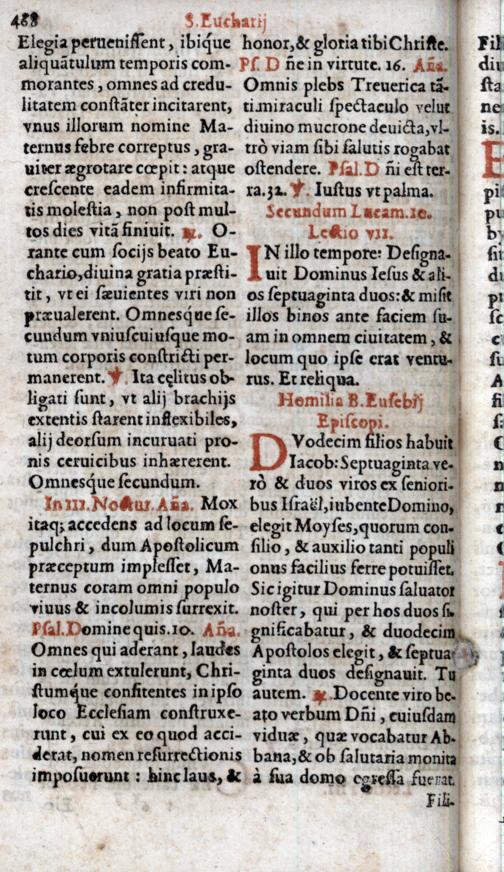 488
S. Eucharij
Elegia peruenissent, ibique
aliquãtulum temporis com-
morantes, omnes ad credu-
litatem constãter incitarent,
vnus illorum nomine Ma-
ternus febre correptus, gra-
uiter ægrotare cœpit: atque
crescente eadem infirmita-
tis molestia, non post mul-
tos dies vitã finiuit. ℟. O-
rante cum socijs beato Eu-
chario, diuina gratia præsti-
tit, vt ei sæuientes viri non
præualerent. Omnesque se-
cundum vniuscuiusque mo-
tum corporis constricti per-
manerent. ℣. Ita cęlitus ob-
ligati sunt, vt alij brachijs
extentis starent inflexibiles,
alij deorsum incuruati pro-
nis ceruicibus inhærerent.
Omnesque secundum.
In III. Noctur. Aña. Mox
itaq; accedens ad locum se-
pulchri, dum Apostolicum
præceptum implesset, Ma-
ternus coram omni populo
viuus & incolumis surrexit.
Psal. Domine quis. 10. Aña.
Omnes qui aderant, laudes
in cœlum extulerunt, Chri-
stumque confitentes in ipso
loco Ecclesiam construxe-
runt, cui ex eo quod acci-
derat, nomen resurrectionis
imposuerunt: hinc laus, &
honor, & gloria tibi Christe.
Ps. D ñe in virtute. 16. Aña.
Omnis plebs Treuerica tã-
ti miraculi spectaculo velut
diuino mucrone deuicta, vl-
trò viam sibi salutis rogabat
ostendere. Psal. D ñi est ter-
ra. 32. ℣. Iustus vt palma.
Secundum Lucam. 10.
Lectio VII.
IN illo tempore: Designa-
uit Dominus Iesus & ali-
os septuaginta duos: & misit
illos binos ante faciem su-
am in omnem ciuitatem, &
locum quo ipse erat ventu-
rus. Et reliqua.
Homilia B. Eusebij
Episcopi.
DVodecim filios habuit
Iacob: Septuaginta ve-
rò & duos viros ex seniori-
bus Israël, iubente Domino,
elegit Moyses, quorum con-
silio, & auxilio tanti populi
onus facilius ferre potuisset.
Sic igitur Dominus saluator
noster, qui per hos duos si-
gnificabatur, & duodecim
Apostolos elegit, & septua-
ginta duos designauit. Tu
autem. ℟. Docente viro be-
ato verbum Dñi, cuiusdam
viduæ, quæ vocabatur Ab-
bana, & ob salutaria monita
à sua domo egressa fuerat.
Fili-